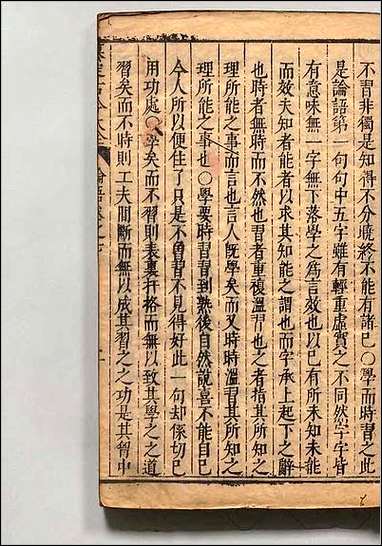 不習非獨是知得不分曉終不能有諸己○學而時習之此
是論語第一句句中五字雖有輕重虛實之不同然字字皆
有意味無一字無下落學之爲言效也以已有所未知未能
而效夫知者能者以求其知能之謂也而字承上起下之辭
也時者無時而不然也習者重複溫習也之者指其所知之
理所能之事而言也言人旣學矣而又時時溫習其所知之
理所能之事也○學要時習習到熟後自然說喜不能自已
今人所以便住了只是不曾習不見得好此一句却係切己
用功處○學矣而不習則表裏扞格而無以致其學之之道
習矣而不時則工夫間斷而無以成其習之之功是其曾中
論語卷之